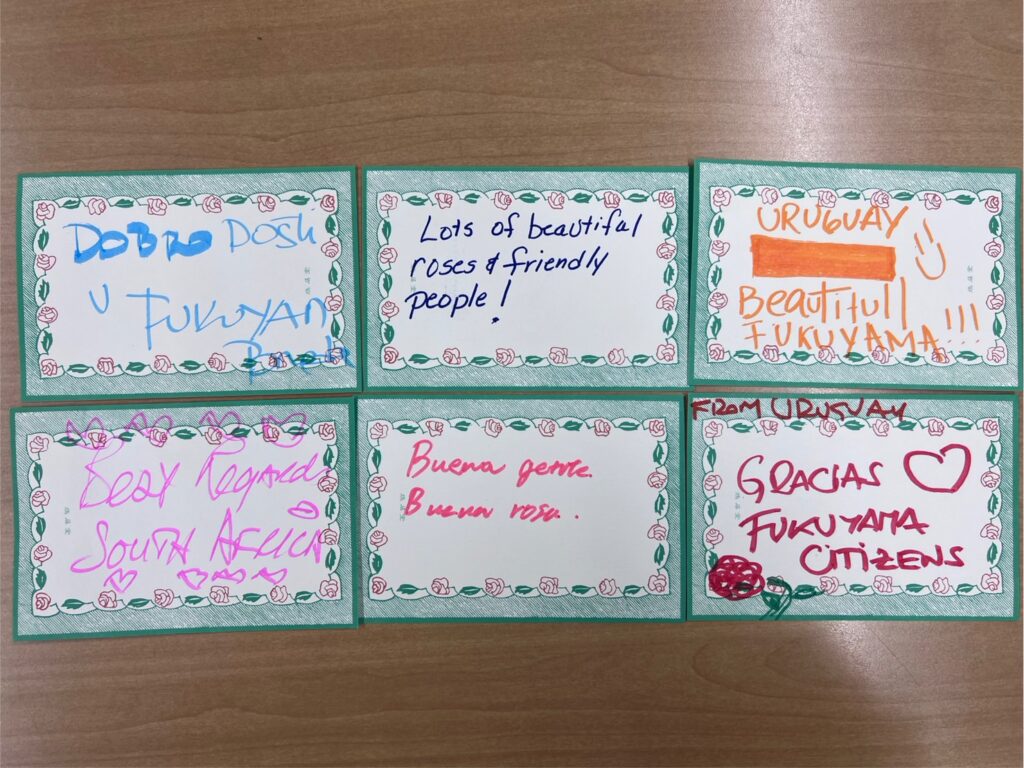 DOBRO DOSLI
U FUKUYAM
Lots of beautiful
roses & friendly
people!
URUGUAY
Beautifull
FUKUYAMA!!!
Best Regards
SOUTH AFRICA
Buena gente.
Buena rosa.
FROM URUGUAY
GRACIAS
FUKUYAMA
CITIZENS